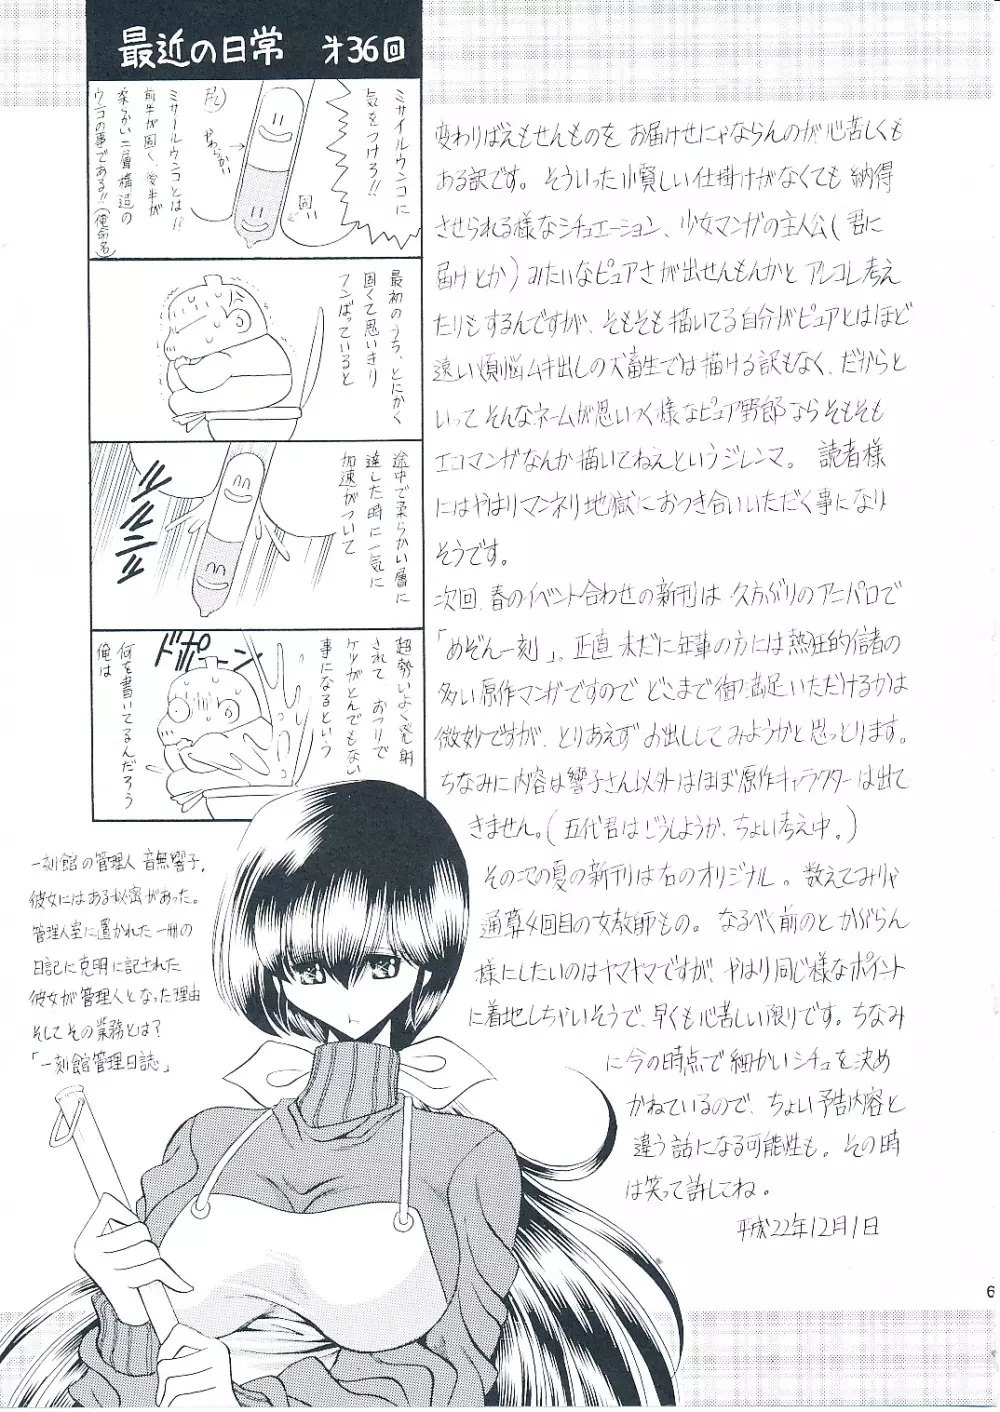 最近の日常 第36回
ミサイルウンコに
気をつけろ!!
固い
(尻)
やわらかい
ミサイルウンコとは!!
前半が固く、後半が
柔らかい二層構造の
ウンコの事である!!(俺命名)
最初のうち、とにかく
固くて思いきり
フンばっていると
途中で柔らかい層に
達した時に一気に
加速がついて
超勢いよく発射
されて おつりで
ケツがとんでもない
事になるという
ドボーン
何を書いてるんだろう
俺は
変わりばえもせんものを お届けせにゃならんのが心苦しくも
ある訳です。そういった小賢しい仕掛けがなくても 納得
させられる様なシチュエーション、少女マンガの主人公(君に
届けとか)みたいなピュアさが出せんもんかと アレコレ考え
たりもするんですが、そもそも描いてる自分がピュアとはほど
遠い煩悩ムキ出しの犬畜生では描ける訳もなく、だからと
いって そんなネームが思いつく様なピュア野郎ならそもそも
エロマンガなんか描いてねえというジレンマ。 読者様
にはやはりマンネリ地獄におつき合いいただく事になり
そうです。
次回、春のイベント合わせの新刊は 久方ぶりのアニパロで
「めぞん一刻」。正直 未だに年輩の方には熱狂的信者の
多い原作マンガですので どこまで御満足いただけるかは
微妙ですが、とりあえず お出ししてみようかと思っとります。
ちなみに内容は響子さん以外はほぼ原作キャラクターは出て
きません。(五代君はどうしようか、ちょい考え中。)
その次の夏の新刊は右のオリジナル。数えてみりゃ
通算4回目の女教師もの。なるべく前のと かぶらん
様にしたいのはヤマヤマですが、やはり同じ様なポイント
に着地しちゃいそうで、早くも心苦しい限りです。ちなみ
に今の時点で細かいシチュを決め
かねているので、ちょい予告内容と
違う話になる可能性も。その時
は笑って許してね。
平成22年12月1日
一刻館の管理人 音無響子。
彼女にはある秘密があった。
管理人室に置かれた一冊の
日記に克明に記された
彼女が管理人となった理由
そしてその業務とは?
「一刻館管理日誌」
6